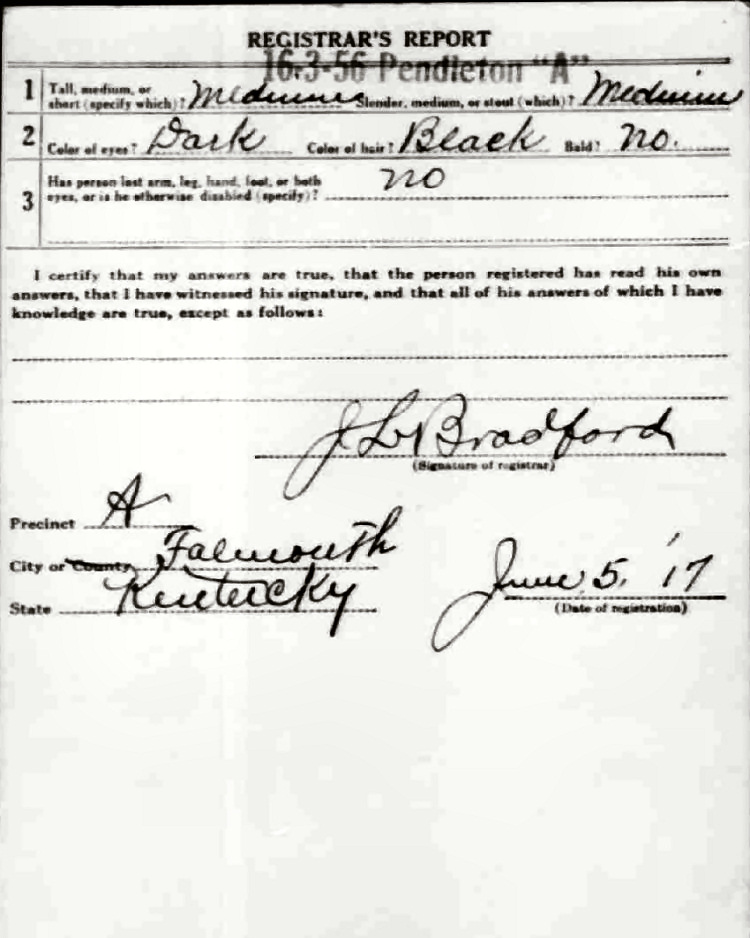 REGISTRAR'S REPORT
16-3-56 Pendleton "A"
1 Tall, medium, or short (specify which)? Medium Slender, medium, or stout (which)? Medium
2 Color of eyes? Dark Color of hair? Black Bald? no.
3 Has person lost arm, leg, hand, foot, or both eyes, or is he otherwise disabled (specify)? no
I certify that my answers are true, that the person registered has read his own
answers, that I have witnessed his signature, and that all of his answers of which I have
knowledge are true, except as follows:
J L Bradford
(Signature of registrar)
Precinct A
City or County Falmouth
State Kentucky
June 5, '17
(Date of registration)